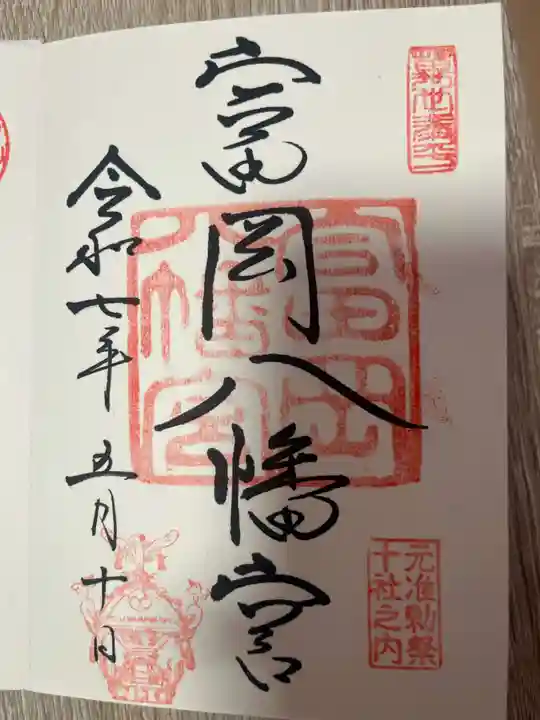 富岡八幡宮
令和七年 五月十日
富岡
八幡宮
元准勅祭
十社之内